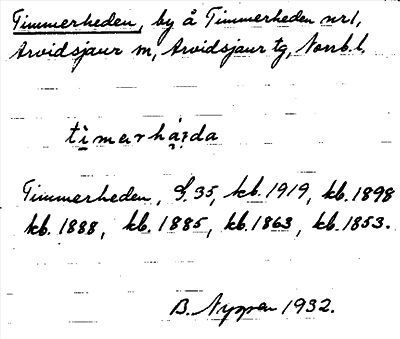 Timmerheden, by å Timmerheden nr1,
Arvidsjaur sn, Arvidsjaur tg, Norrb.l.
timarhåi̯da
Timmerheden, G.35, kb.1919, kb.1898
kb.1888, kb.1885, kb.1863, kb.1853.
B. Nyppen 1932.